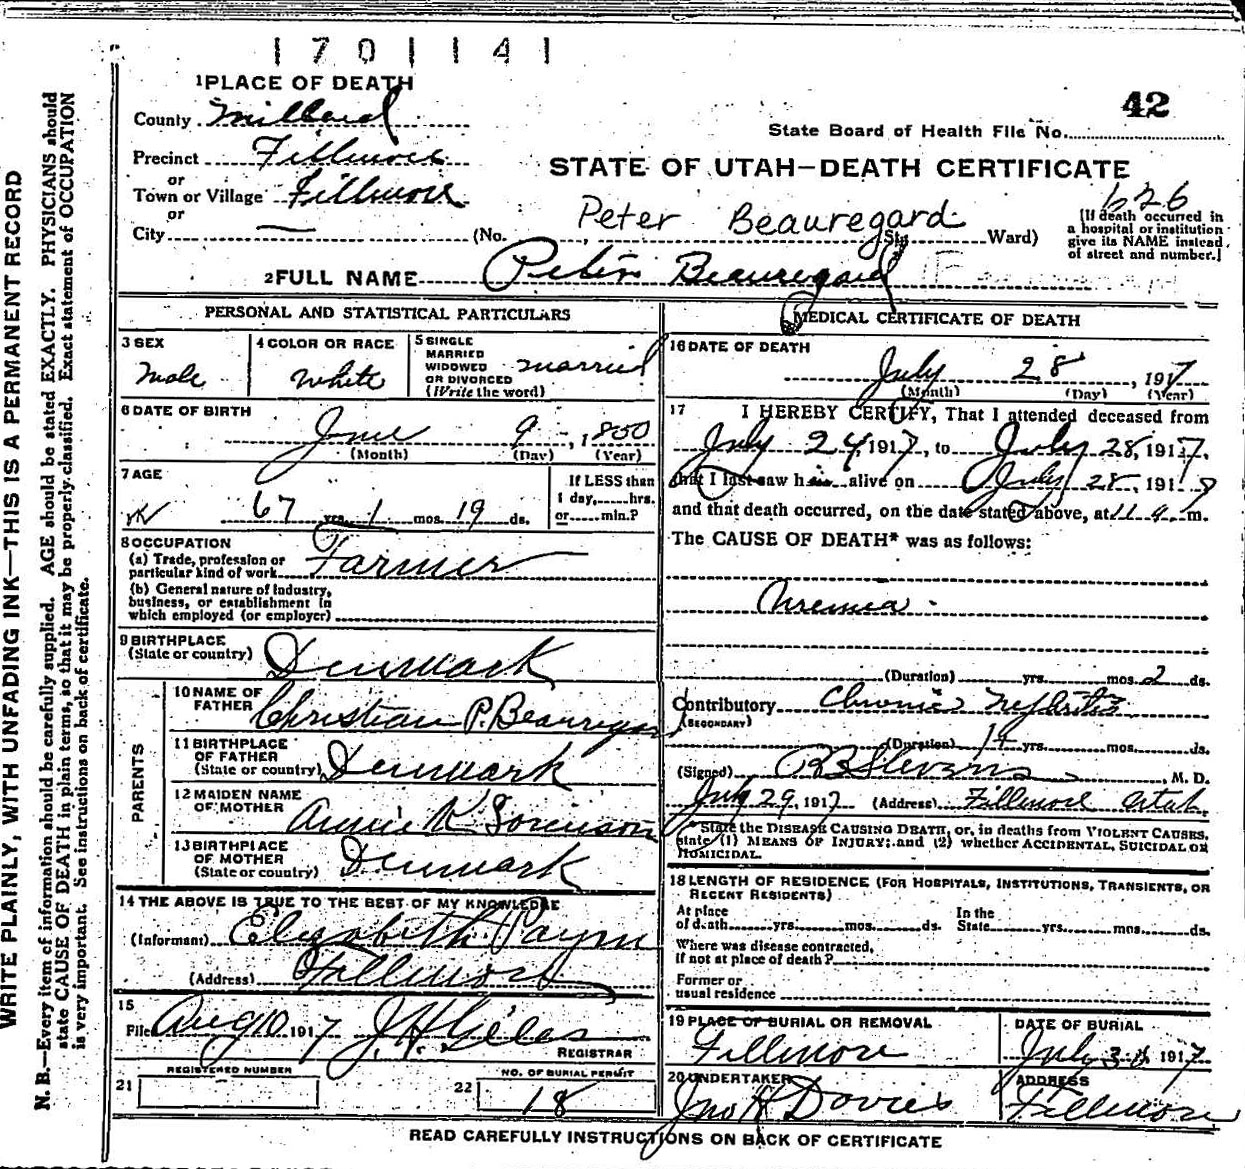 1701141
42
1 PLACE OF DEATH
County Millard
State Board of Health File No.
Precinct Fillmore
STATE OF UTAH—DEATH CERTIFICATE
or
Town or Village Fillmore
626
or
City — (No. Peter Beauregard St. Ward)
[If death occurred in
a hospital or institution
give its NAME instead
of street and number.]
2 FULL NAME Peter Beauregard
PERSONAL AND STATISTICAL PARTICULARS
3 SEX
Male
4 COLOR OR RACE
White
5 SINGLE
MARRIED
WIDOWED
OR DIVORCED
(Write the word)
married
6 DATE OF BIRTH
June 9, 1850
(Month) (Day) (Year)
7 AGE
67 yrs. 1 mos. 19 ds.
If LESS than
1 day, hrs.
or min.?
8 OCCUPATION
(a) Trade, profession or
particular kind of work Farmer
(b) General nature of Industry,
business, or establishment in
which employed (or employer)
9 BIRTHPLACE
(State or country) Denmark
PARENTS
10 NAME OF
FATHER Christian P. Beauregard
11 BIRTHPLACE
OF FATHER
(State or country) Denmark
12 MAIDEN NAME
OF MOTHER Annie K Sorenson
13 BIRTHPLACE
OF MOTHER
(State or country) Denmark
14 THE ABOVE IS TRUE TO THE BEST OF MY KNOWLEDGE
(Informant) Elizabeth Payne
(Address) Fillmore
15
Filed Aug 10 1917 J. H. Giles
REGISTRAR
REGISTERED NUMBER
21
NO. OF BURIAL PERMIT
22 18
MEDICAL CERTIFICATE OF DEATH
16 DATE OF DEATH
July 28, 1917
(Month) (Day) (Year)
17 I HEREBY CERTIFY, That I attended deceased from
July 24, 1917, to July 28, 1917,
that I last saw him alive on July 28, 1917
and that death occurred, on the date stated above, at 11 a m.
The CAUSE OF DEATH* was as follows:
Uremia.
(Duration) yrs. mos. 2 ds.
Contributory Chronic Nephritis
(SECONDARY)
(Duration) 14 yrs. mos. ds.
(Signed) R B Stevens, M. D.
July 29, 1917 (Address) Fillmore Utah
* State the DISEASE CAUSING DEATH, or, in deaths from VIOLENT CAUSES,
state (1) MEANS OF INJURY; and (2) whether ACCIDENTAL, SUICIDAL OR
HOMICIDAL.
18 LENGTH OF RESIDENCE (FOR HOSPITALS, INSTITUTIONS, TRANSIENTS, OR
RECENT RESIDENTS)
At place
of death yrs. mos. ds.
In the
State yrs. mos. ds.
Where was disease contracted,
if not at place of death?
Former or
usual residence
19 PLACE OF BURIAL OR REMOVAL
Fillmore
DATE OF BURIAL
July 30 1917
20 UNDERTAKER
Jno H Davies
ADDRESS
Fillmore
READ CAREFULLY INSTRUCTIONS ON BACK OF CERTIFICATE
WRITE PLAINLY, WITH UNFADING INK—THIS IS A PERMANENT RECORD
N. B.—Every item of information should be carefully supplied. AGE should be stated EXACTLY. PHYSICIANS should
state CAUSE OF DEATH in plain terms, so that it may be properly classified. Exact statement of OCCUPATION
is very important. See instructions on back of certificate.